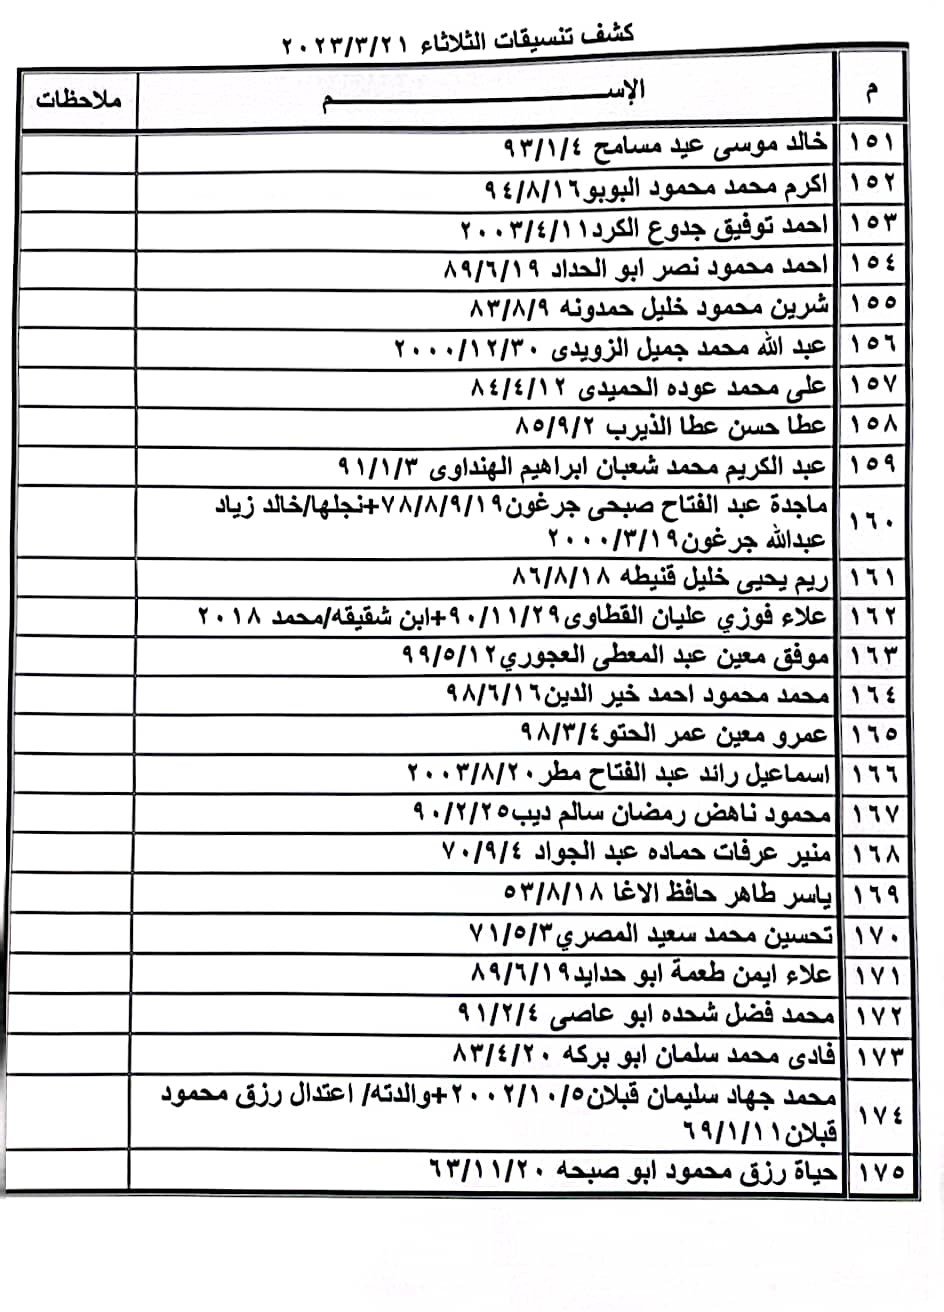 كشف تنسيقات الثلاثاء ٢٠٢٣/٣/٢١
م الإســــــــــــــــــــــــم ملاحظات
١٥١ خالد موسى عيد مسامح ٩٣/١/٤
١٥٢ اكرم محمد محمود البوبو٩٤/٨/١٦
١٥٣ احمد توفيق جدوع الكرد٢٠٠٣/٤/١١
١٥٤ احمد محمود نصر ابو الحداد ٨٩/٦/١٩
١٥٥ شرين محمود خليل حمدونه ٨٣/٨/٩
١٥٦ عبد الله محمد جميل الزويدى ٢٠٠٠/١٢/٣٠
١٥٧ على محمد عوده الحميدى ٨٤/٤/١٢
١٥٨ عطا حسن عطا الذيرب ٨٥/٩/٢
١٥٩ عبد الكريم محمد شعبان ابراهيم الهنداوى ٩١/١/٣
١٦٠ ماجدة عبد الفتاح صبحى جرغون٧٨/٨/٩/١٩+نجلها/خالد زياد
عبدالله جرغون٢٠٠٠/٣/١٩
١٦١ ريم يحيى خليل قنيطه ٨٦/٨/١٨
١٦٢ علاء فوزي عليان القطاوى٩٠/١١/٢٩+ابن شقيقه/محمد ٢٠١٨
١٦٣ موفق معين عبد المعطى العجوري٩٩/٥/١٢
١٦٤ محمد محمود احمد خير الدين٩٨/٦/١٦
١٦٥ عمرو معين عمر الحتو٩٨/٣/٤
١٦٦ اسماعيل رائد عبد الفتاح مطر٢٠٠٣/٨/٢٠
١٦٧ محمود ناهض رمضان سالم ديب٩٠/٢/٢٥
١٦٨ منير عرفات حماده عبد الجواد ٧٠/٩/٤
١٦٩ ياسر طاهر حافظ الاغا ٥٣/٨/١٨
١٧٠ تحسين محمد سعيد المصري٧١/٥/٣
١٧١ علاء ايمن طعمة ابو حدايد٨٩/٦/١٩
١٧٢ محمد فضل شحده ابو عاصى ٩١/٢/٤
١٧٣ فادى محمد سلمان ابو بركه ٨٣/٤/٢٠
١٧٤ محمد جهاد سليمان قبلان٢٠٠٢/١٠/٥+والدته/ اعتدال رزق محمود
قبلان٦٩/١/١١
١٧٥ حياة رزق محمود ابو صبحه ٦٣/١١/٢٠